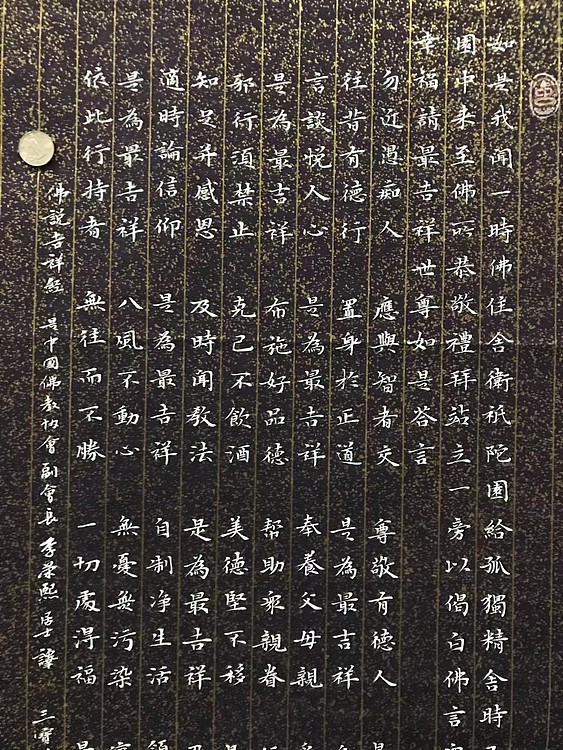 如是我聞一時佛住舍衛祇陀園給孤獨精舍時
園中来至佛所恭敬禮拜站立一旁以偈白佛言
幸福請最吉祥世尊如是答言
勿近愚痴人 應與智者交 尊敬有德人
往昔有德行 置身於正道 是為最吉祥
言談悦人心 是為最吉祥 奉養父母親
是為最吉祥 布施好品德 帮助眾親眷
邪行須禁止 克己不飲酒 美德堅不移
知足并感恩 及時聞教法 是為最吉祥
適時論信仰 是為最吉祥 自制净生活
是為最吉祥 八風不動心 無憂無污染
依此行持者 無往而不勝 一切處得福
佛説吉祥經 是中國佛教協會副會長李榮熙居士譯 三寶